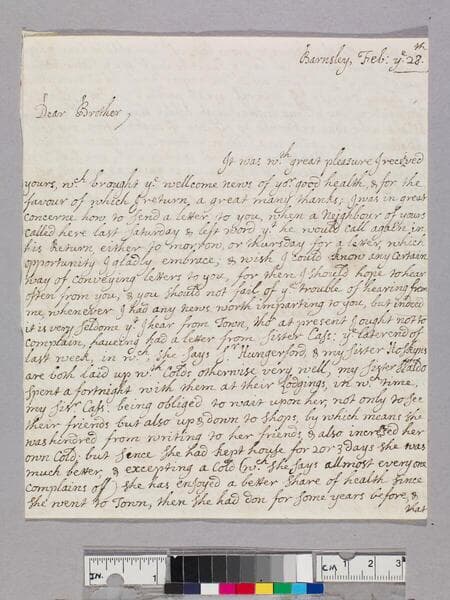 Barnsley, Feb: yᵉ 28.ᵗʰ
Dear Brother,
It was wᵗʰ great pleasure I received
yours, wᶜʰ brought yᵉ wellcome news of yoʳ good health, & for the
favour of which I return, a great many thanks; I was in great
concerne how to send a letter to you, when a Neighbour of yours
called here last Saturday & left word yᵗ he would call again in
his Return, either to morrow, or thursday for a letter, which
opportunity I gladly embrace; & wish I could know any Certain
way of conveying letters to you, for then I should hope to hear
often from you, & you should not fail of yᵉ trouble of hearing from
me, whenever I had any news worth imparting to you, but indeed
it is very seldome yᵗ I hear from Town, thoʾ at present I ought not to
complain, haveing had a letter from Sister Cass: yᵉ later end of
last week, in wᶜʰ she says Sʳ Hungerford, & my Sister Hoskyns
are both laid up wᵗʰ Colds, otherwise very well, my Sister
spent a fortnight with them at their Lodgings, in wᶜʰ time,
my Sisʳ Cass: being obliged to wait upon her, not only to see
their friends but also up & down to shops, by which means she
was hindred from writing to her friends, & also incresed her
own Cold; but sence she had kept house for 2 or 3 days she was
much better, & excepting a Cold (wᶜʰ she says allmost every one
complains off) she has enjoyed a better share of health since
she went to Town, then she had don for some years before, &
that
IN.
1
CM
1
2
3